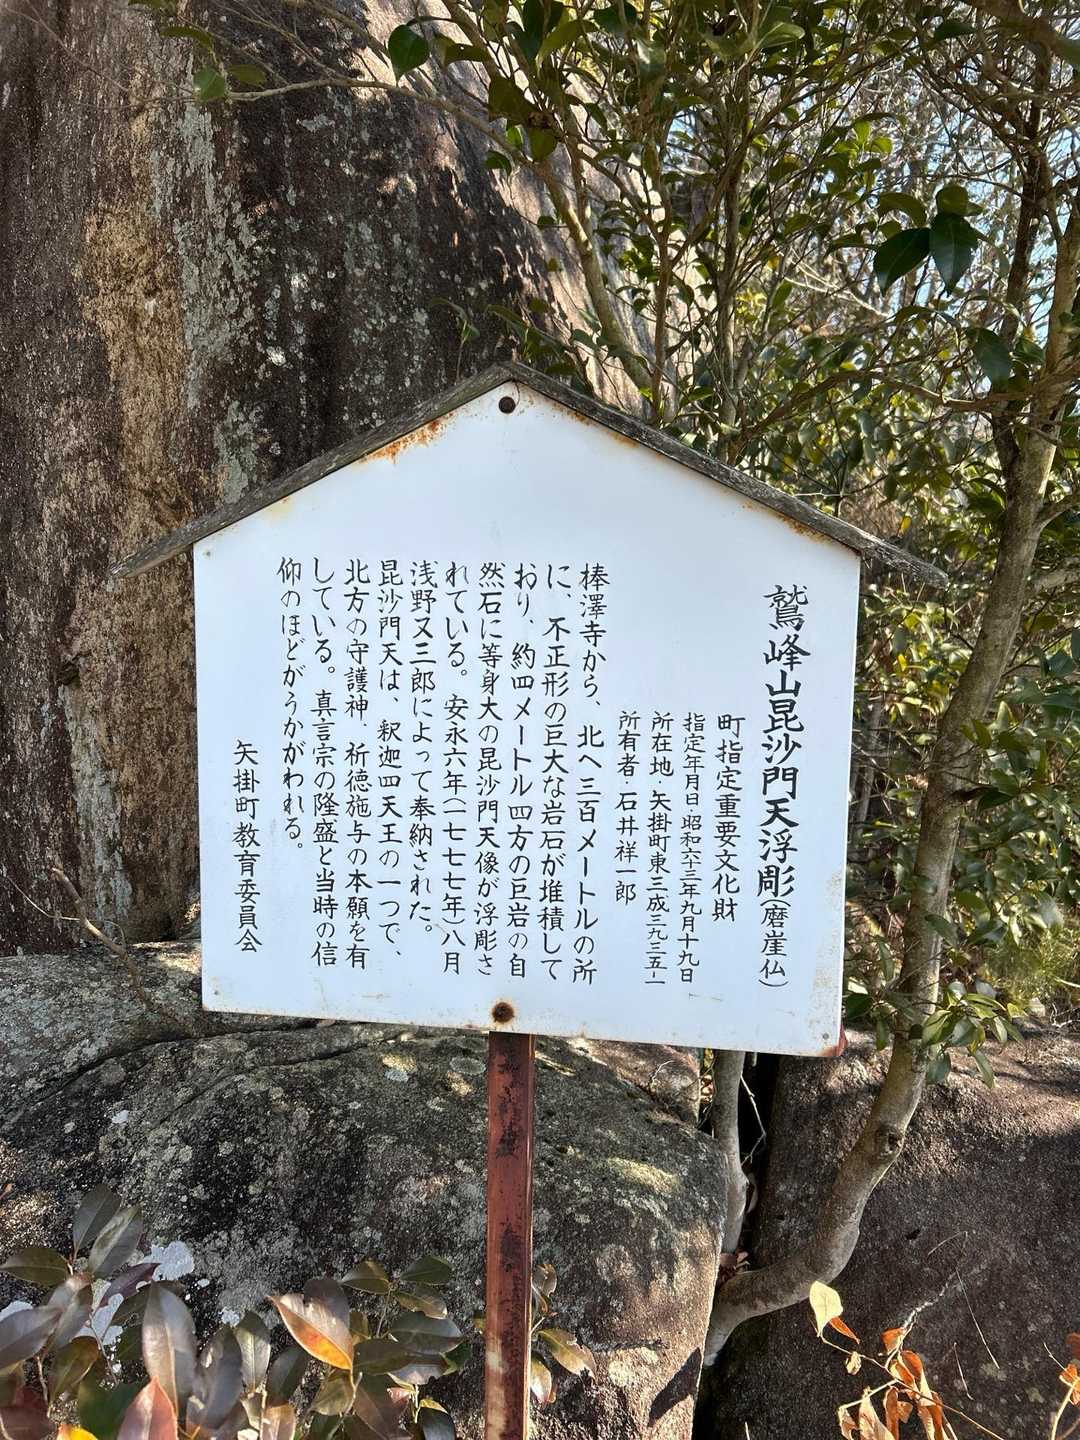 鷲峰山毘沙門天浮彫(磨崖仏)
町指定重要文化財
指定年月日・昭和六十三年九月十九日
所在地・矢掛町東三成三九三五ー一
所有者・石井祥一郎
棒澤寺から、北へ三百メートルの所
に、不正形の巨大な岩石が堆積して
おり、約四メートル四方の巨岩の自
然石に等身大の毘沙門天像が浮彫さ
れている。安永六年(一七七七年)八月
浅野又三郎によって奉納された。
毘沙門天は、釈迦四天王の一つで、
北方の守護神、祈徳施与の本願を有
している。真言宗の隆盛と当時の信
仰のほどがうかがわれる。
矢掛町教育委員会